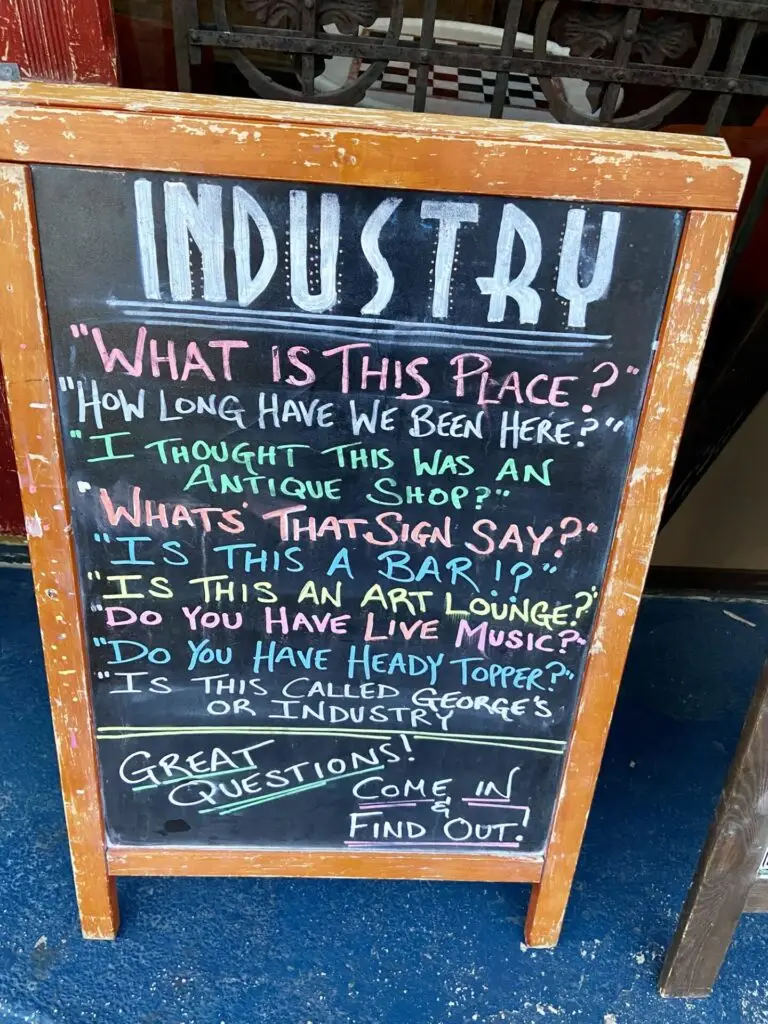 INDUSTRY
"WHAT IS THIS PLACE?"
"HOW LONG HAVE WE BEEN HERE?"
"I THOUGHT THIS WAS AN
ANTIQUE SHOP?"
"WHATS' THAT SIGN SAY?"
"IS THIS A BAR!?"
"IS THIS AN ART LOUNGE?"
"DO YOU HAVE LIVE MUSIC?"
"DO YOU HAVE HEADY TOPPER?"
"IS THIS CALLED GEORGE'S
OR INDUSTRY
GREAT
QUESTIONS!
COME IN
&
FIND OUT!